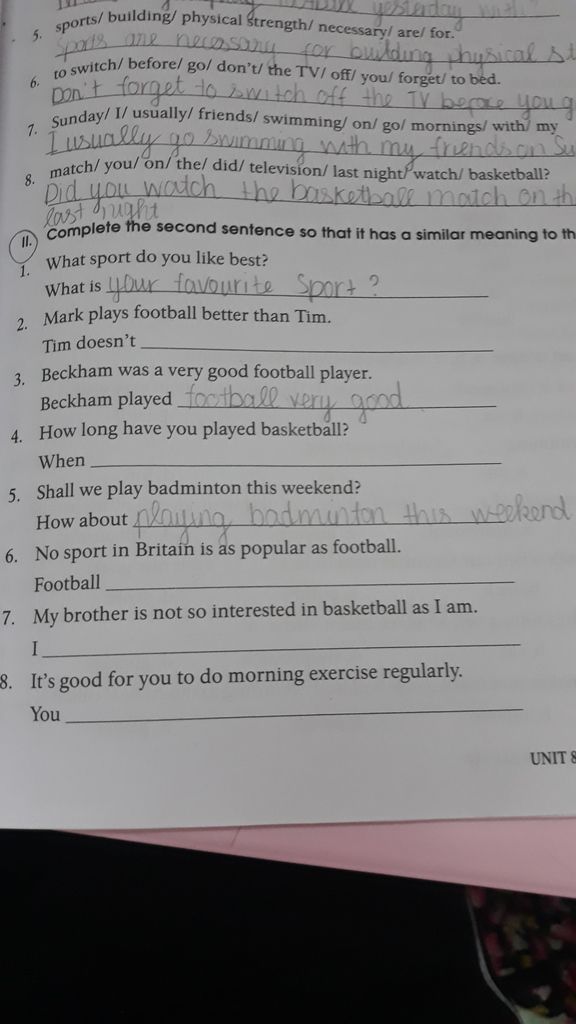 yesterday with
5. sports/ building/ physical strength/ necessary/ are/ for.
Sports are necessary for building physical st
6. to switch/ before/ go/ don't/ the TV/ off/ you/ forget/ to bed.
Don't forget to switch off the TV before you g
7. Sunday/ I/ usually/ friends/ swimming/ on/ go/ mornings/ with/ my
I usually go swimming with my friends on Su
8. match/ you/ on/ the/ did/ television/ last night/ watch/ basketball?
Did you watch the basketball match on th
last night
II. Complete the second sentence so that it has a similar meaning to th
1. What sport do you like best?
What is your favourite sport?
2. Mark plays football better than Tim.
Tim doesn't
3. Beckham was a very good football player.
Beckham played football very good
4. How long have you played basketball?
When
5. Shall we play badminton this weekend?
How about playing badminton this weekend
6. No sport in Britain is as popular as football.
Football
7. My brother is not so interested in basketball as I am.
I
8. It's good for you to do morning exercise regularly.
You
UNIT 8